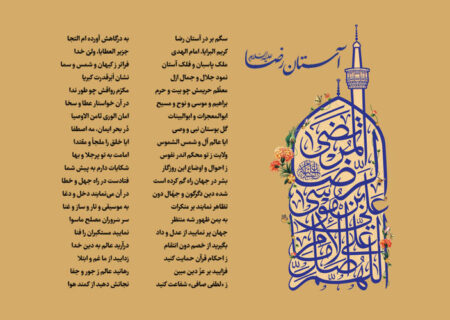 آستان رضا
علیه السلام
سگم بر در آستان رضا
به درگاهش آورده ام التجا
کریم البرایا، امام الهدی
جزیر العطایا، ولن خدا
ملک پاسبان و فلک آستان
فراتر ز کیهان و شمس و سما
نمود جلال و جمال ازل
نشان اَبَرقدرت کبریا
معظّم حریمش چو بیت و حرم
مکرّم رواقش چو طور ندا
براهیم و موسی و نوح و مسیح
در آن خواستار عطا و سخا
ابوالمعجزات و ابوالبینات
امان الوری ثامن الاوصیا
گل بوستان نبی و وصی
دُر بحر ایمان، مه اصطفا
ایا عالم آل و شمس الشموس
ایا خلق را ملجأ و مقتدا
ولایت ز تو محکم اندر نفوس
امامت به تو پرجلا و بها
ز احوال و اوضاع این روزگار
شکایات دارم به پیش شما
بشر در جهان راه گم کرده است
فتادست در راه جهل و خطا
شده دین دگرگون و جهّال دون
در آن می‌نمایند دخل و دغا
تظاهر نمایند بر منکرات
به موسیقی و تار و ساز و غنا
به یمن ظهور شه منتظر
سر سروران مصلح ماسوا
جهان پر نمایید از عدل و داد
نمایید مستکبران را فنا
بگیرید از خصم دون انتقام
درآرید عالم به دین خدا
ز احکام قرآن حمایت کنید
زدایید از ما غم و ابتلا
فزایید بر عزّ دین مبین
رهانید عالم ز جور و جفا
ز «لطفی صافی» شفاعت کنید
نجاتش دهید از کمند هوا
اللهم صل علی علی بن موسی الرضا المرتضی